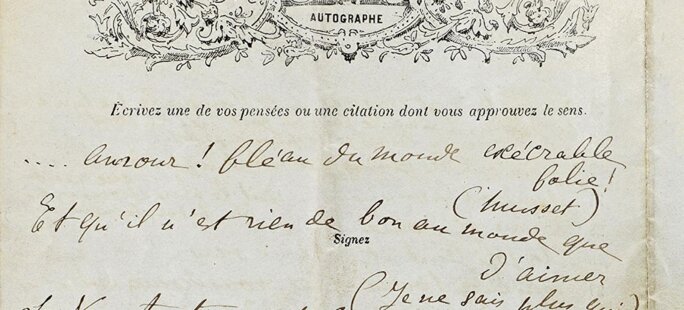 AUTOGRAPHE
Écrivez une de vos pensées ou une citation dont vous approuvez le sens.
.... amour ! fléau du monde exécrable
folie !
(Musset)
Et qu'il n'est rien de bon au monde que
Signez
d'aimer
(Je ne sais plus qui)